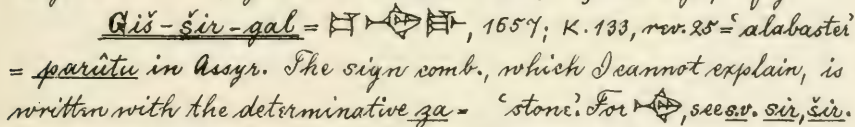 Giš-šir-gal = 𒄑 𒋓 𒃲, 1657; K. 133, rev. 25 = ‘alabaster’
= parûtu in Assyr. The sign comb., which I cannot explain, is
written with the determinative za = ‘stone’. For 𒋓, see s.v. sir, šir.